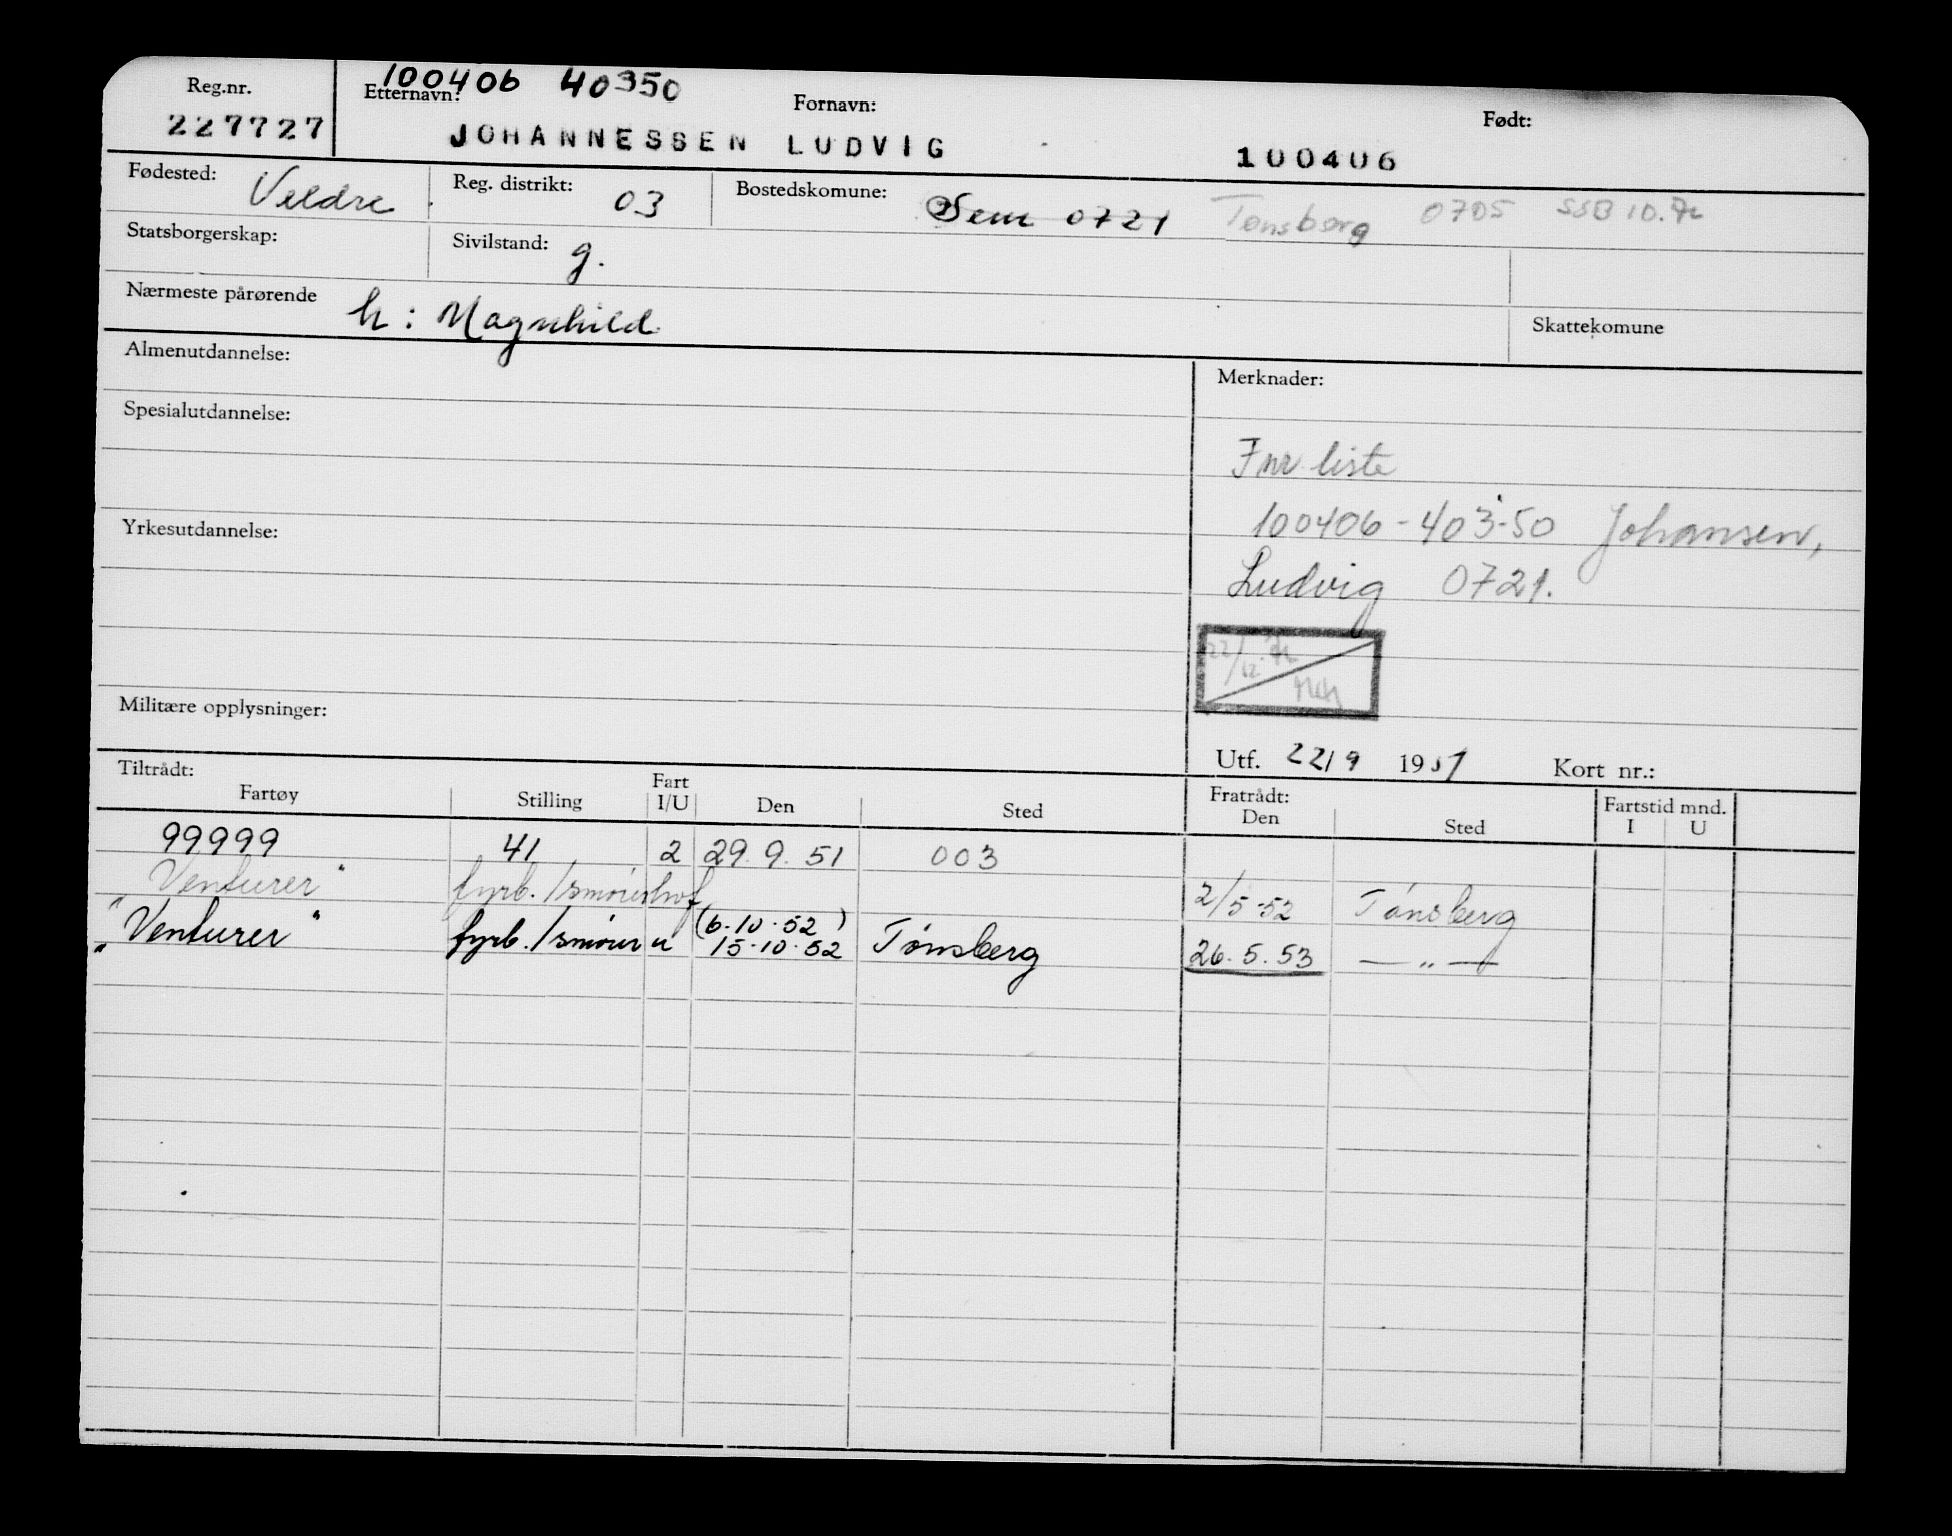 100406 40350
Reg.nr. Etternavn: Fornavn: Født:
227727 JOHANNESSEN LUDVIG 100406
Fødested: Veldre Reg. distrikt: 03 Bostedskomune: Sem 0721 Tønsberg 0705 SSB 10.72
Statsborgerskap: Sivilstand: g.
Nærmeste pårørende h: Magnhild Skattekomune
Almenutdannelse: Merknader:
Spesialutdannelse:
Fnr liste
Yrkesutdannelse: 100406-403-50 Johansen,
Ludvig 0721.
22/12.72
Militære opplysninger:
Utf. 22/9 1951 Kort nr.:
Tiltrådt: Fart Fratrådt: Fartstid mnd.
Fartøy Stilling I/U Den Sted Den Sted I U
99999 41 2 29.9.51 003
"Venturer" fyrb./smører hvf 2/5-52 Tønsberg
"Venturer" fyrb./smører u (6.10.52) 15.10.52 Tønsberg 26.5.53 — " —